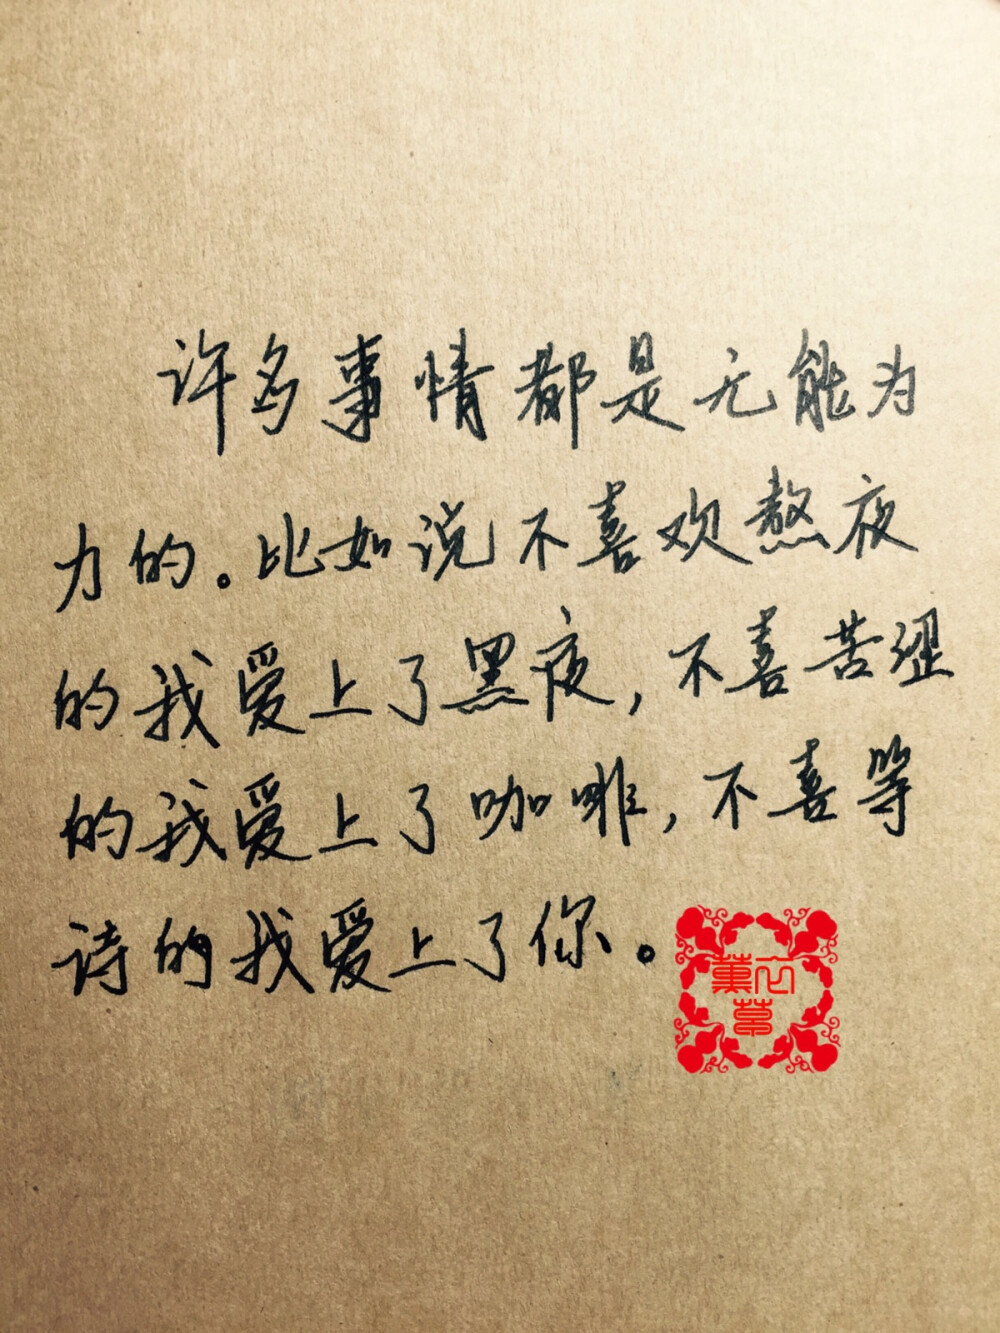 许多事情都是无能为
力的。比如说不喜欢熬夜
的我爱上了黑夜,不喜苦涩
的我爱上了咖啡,不喜等
诗的我爱上了你。
薰衣
草